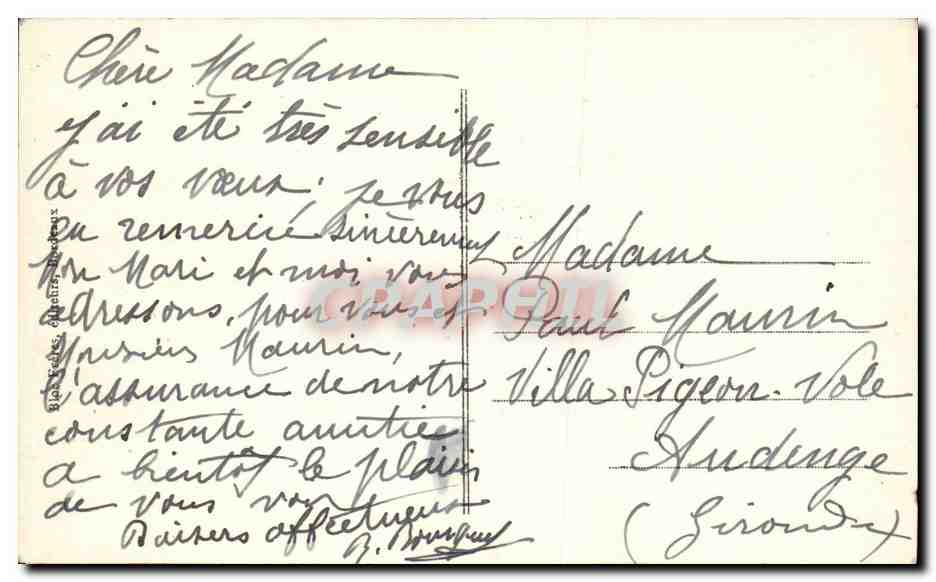 Chère Madame
j'ai été très sensible
à vos vœux, je vous
en remercie sincèrement
Mon Mari et moi vous
adressons, pour vous et
Monsieur Maurin,
l'assurance de notre
constante amitiée
a bientôt le plaisir
de vous voir
Baisers affectueux
Madame
Paul Maurin
Villa Pigeon-Vole
Audenge
(Gironde)
éditeurs, Bordeaux
CPAPHIL